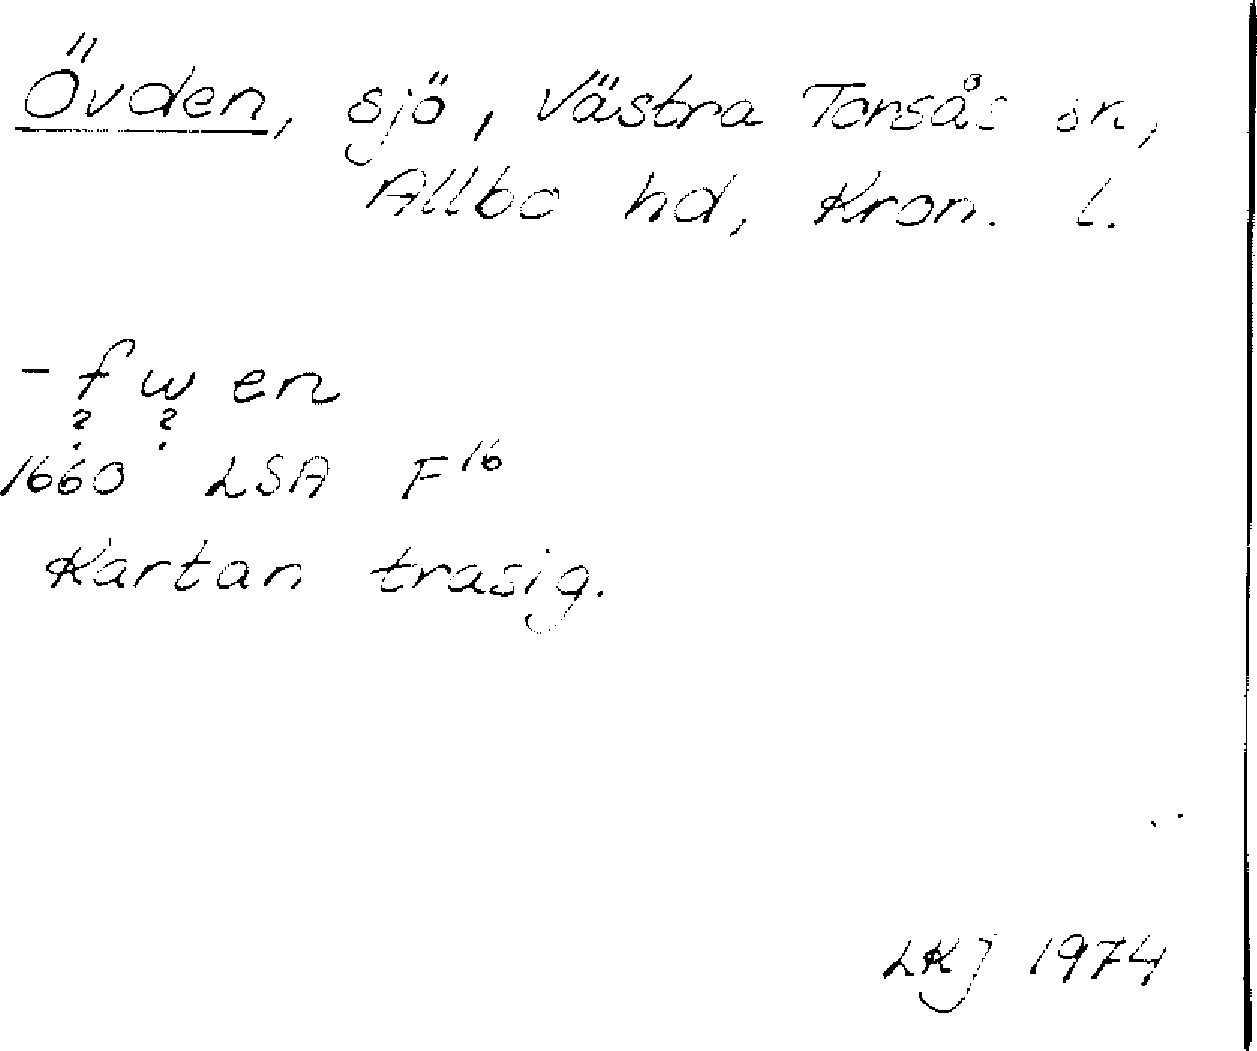 Övden, sjö, Västra Torsås sn,
Allbo hd, Kron. l.
- f w en
? ?
1660 LSA F 16
Kartan trasig.
LKJ 1974